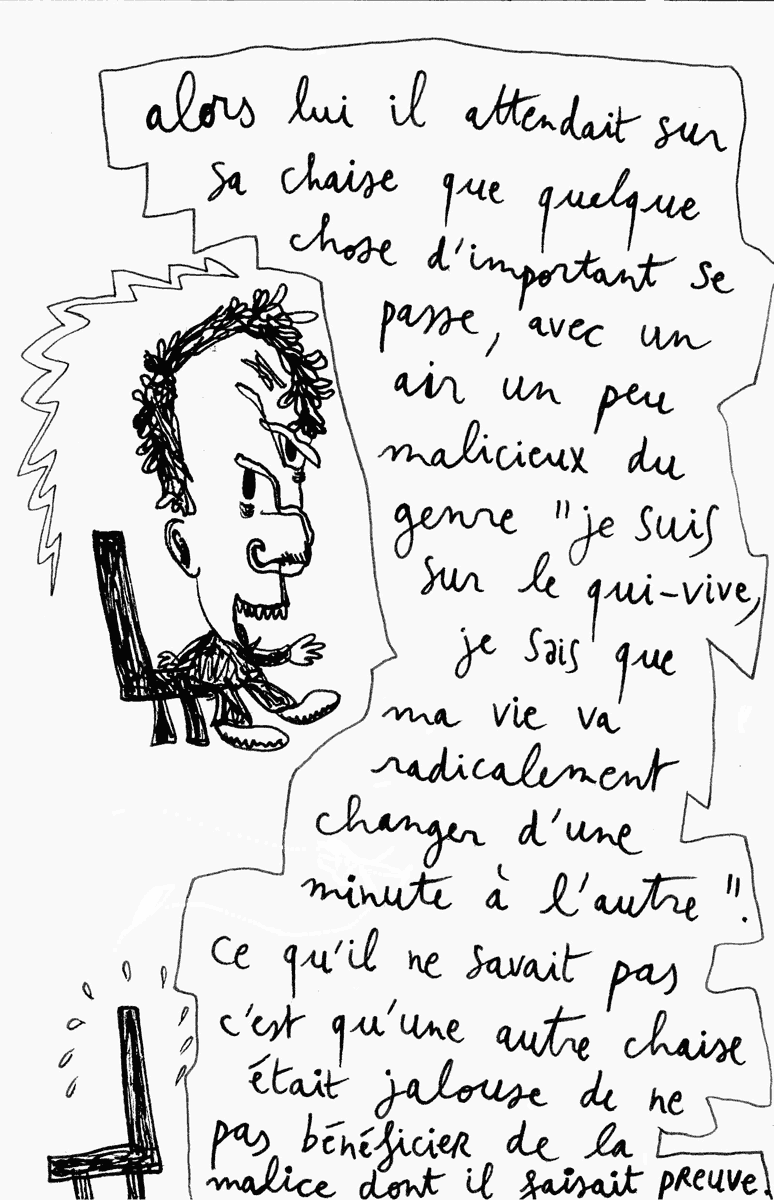 alors lui il attendait sur
sa chaise que quelque
chose d'important se
passe, avec un
air un peu
malicieux du
genre "je suis
sur le qui-vive,
je sais que
ma vie va
radicalement
changer d'une
minute à l'autre".
ce qu'il ne savait pas
c'est qu'une autre chaise
était jalouse de ne
pas bénéficier de la
malice dont il faisait preuve.